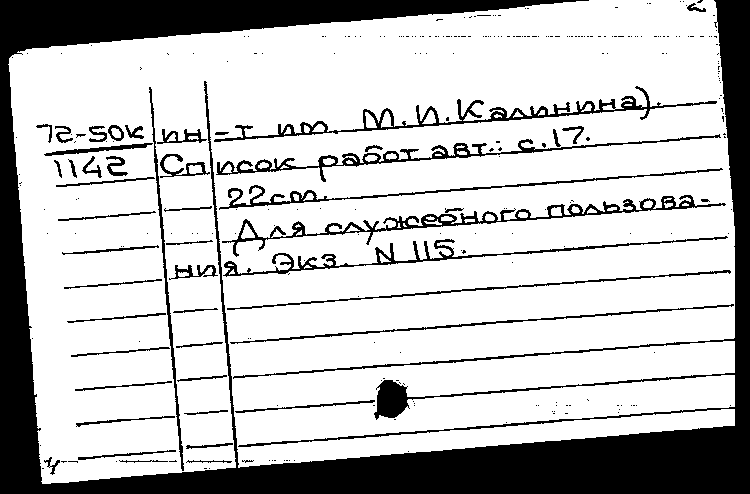 2
72-50к ин-т им. М.И.Калинина).
1142 Список работ авт.: с.17.
22см.
Для служебного пользова-
ния. Экз. N 115.